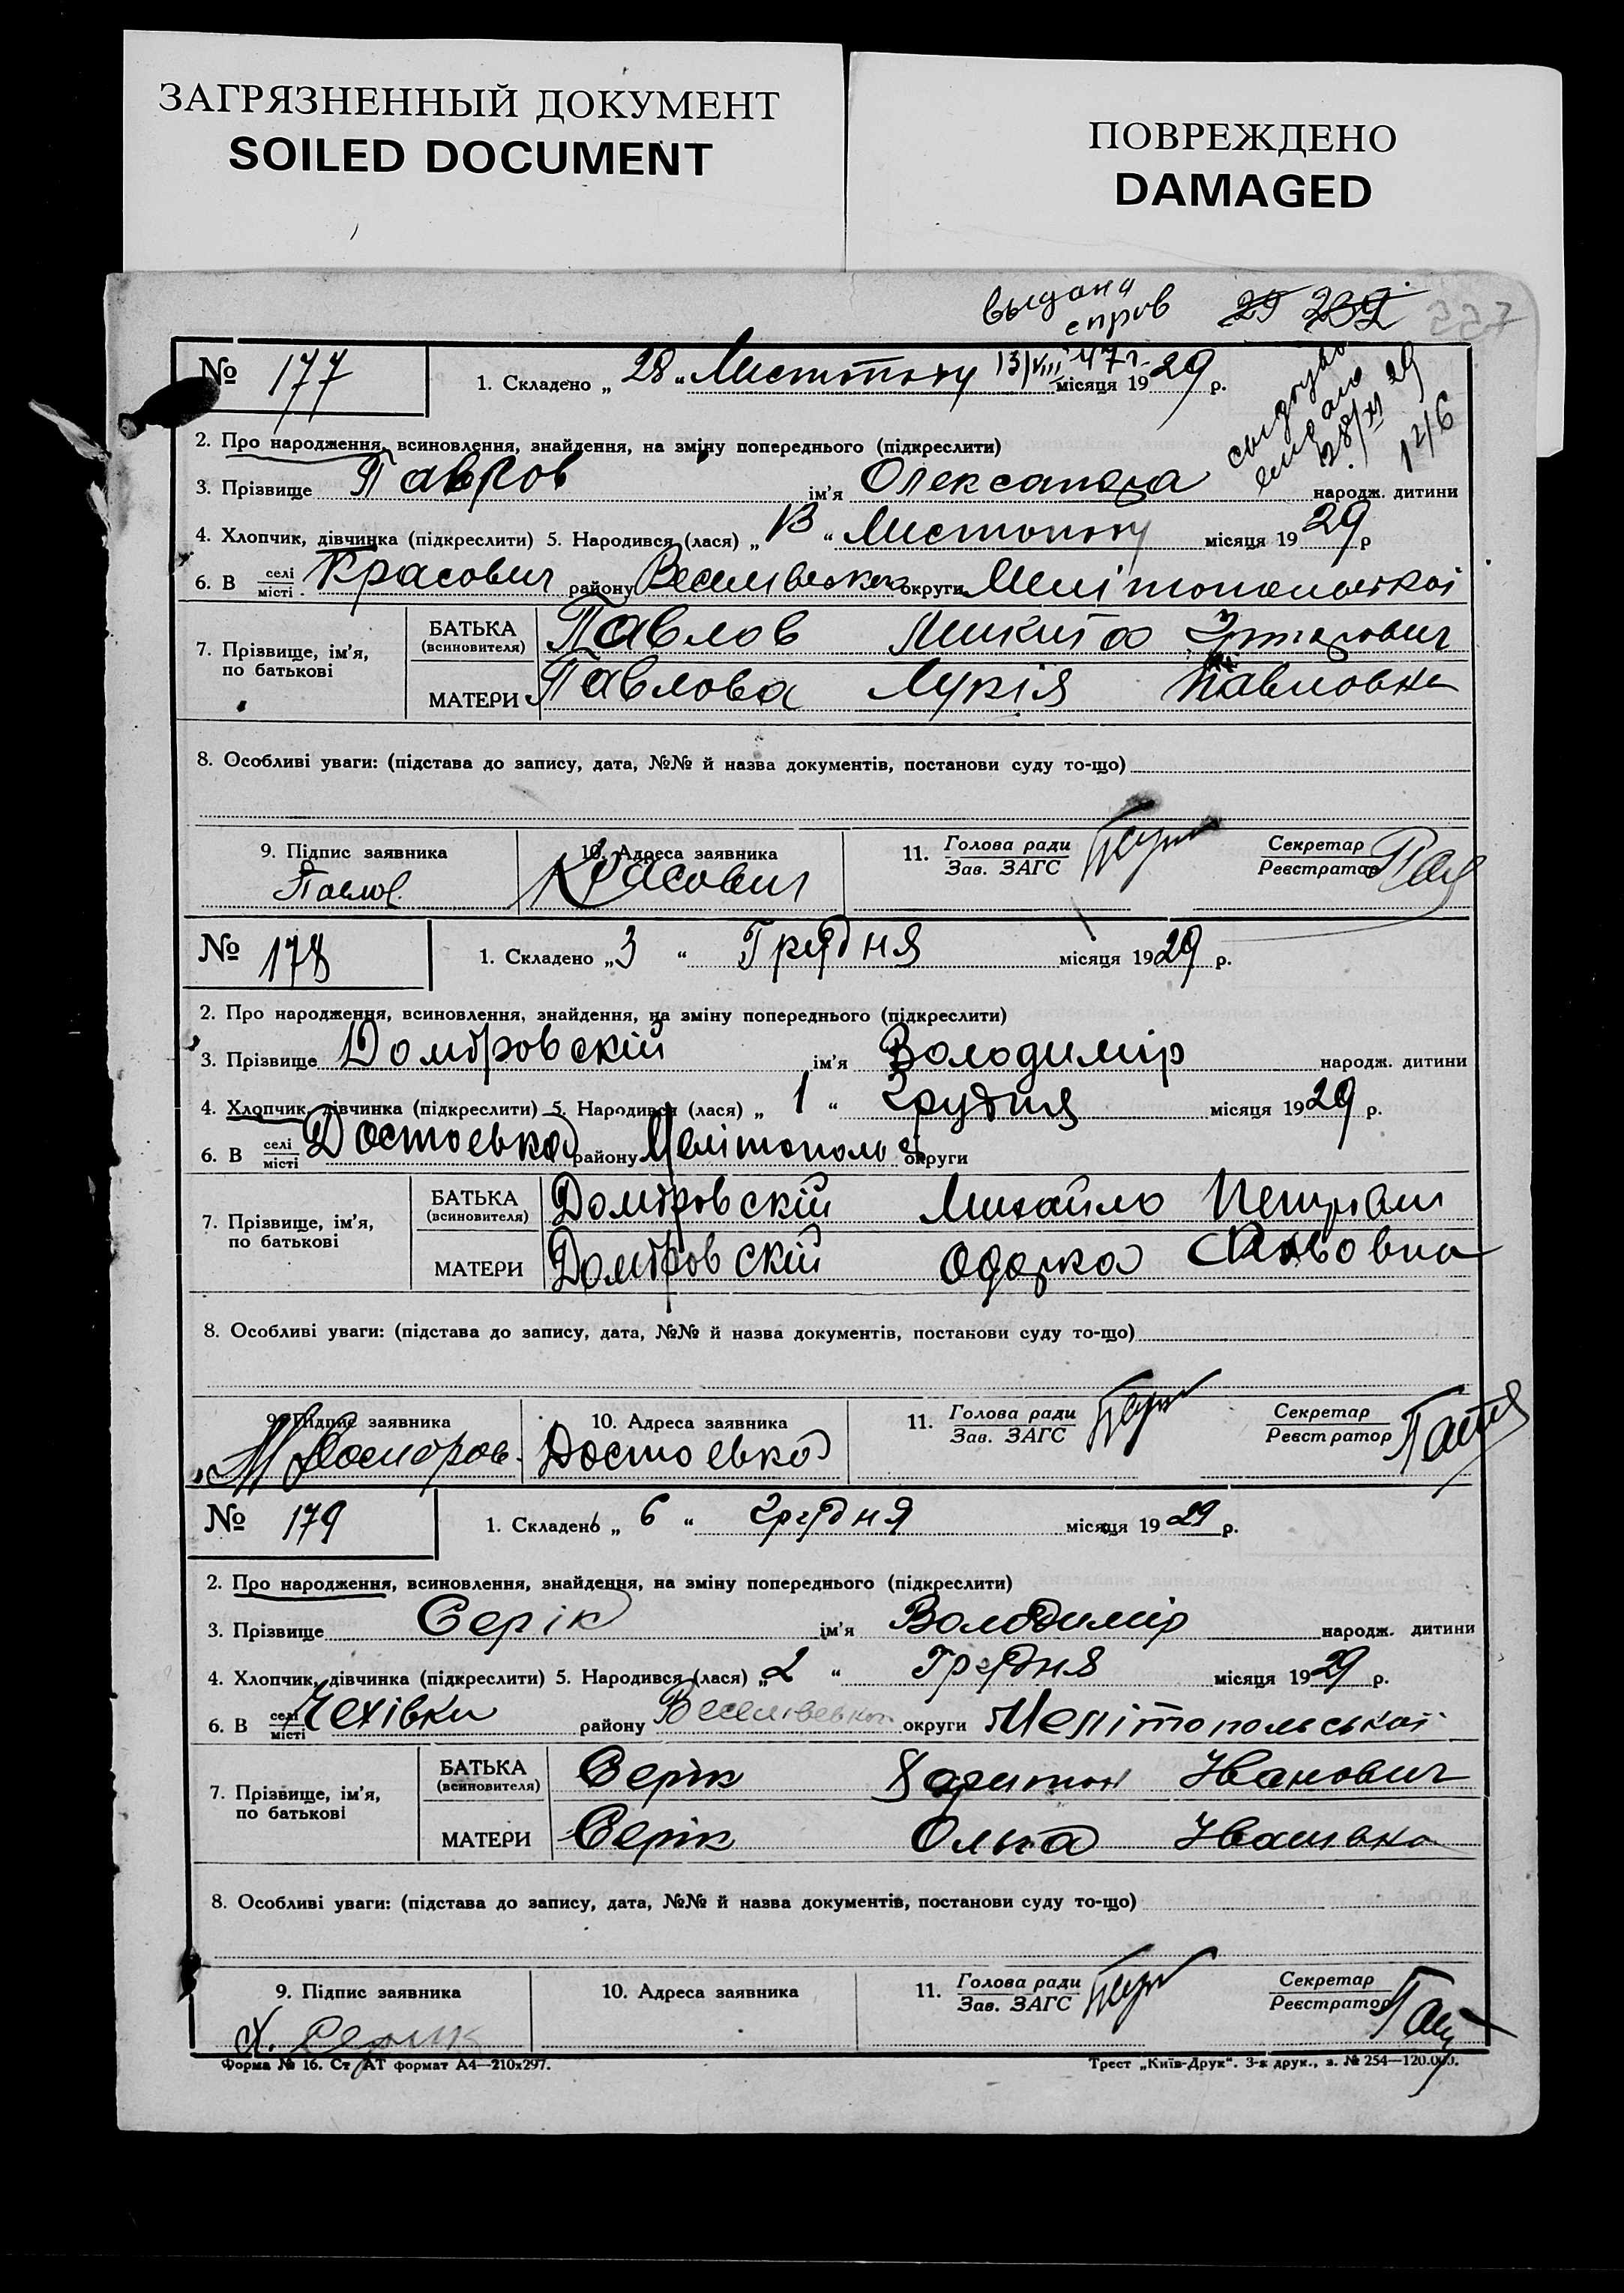 ЗАГРЯЗНЕННЫЙ ДОКУМЕНТ
SOILED DOCUMENT
ПОВРЕЖДЕНО
DAMAGED
выдана
справ 29 239 227
13/VIII 47 г.
28/XI 29
№ 177 1. Складено „ 28 „ Листопаду місяця 1929 р.
2. Про народження, всиновлення, знайдення, на зміну попереднього (підкреслити)
3. Прізвище Павлов ім'я Олександра народж. дитини
4. Хлопчик, дівчинка (підкреслити) 5. Народився (лася) „ 13 “ Листопаду місяця 1929 р
6. В селі/місті Красович району Веселівської округи Мелітопольської
7. Прізвище, ім'я, по батькові
БАТЬКА (всиновителя) Павлов Микита
МАТЕРИ Павлова Лукія Павловна
8. Особливі уваги: (підстава до запису, дата, №№ й назва документів, постанови суду то-що)
9. Підпис заявника 10. Адреса заявника 11. Голова ради/Зав. ЗАГС Секретар/Реєстратор
Павлов Красович
№ 178 1. Складено „ 3 “ Грудня місяця 1929 р.
2. Про народження, всиновлення, знайдення, на зміну попереднього (підкреслити)
3. Прізвище Домбровскій ім'я Володимір народж. дитини
4. Хлопчик, дівчинка (підкреслити) 5. Народився (лася) „ 1 “ Грудня місяця 1929 р.
6. В селі/місті Достоевка району Мелітополь округи
7. Прізвище, ім'я, по батькові
БАТЬКА (всиновителя) Домбровскій Михайло Петрович
МАТЕРИ Домбровскій Одарка
8. Особливі уваги: (підстава до запису, дата, №№ й назва документів, постанови суду то-що)
9. Підпис заявника 10. Адреса заявника 11. Голова ради/Зав. ЗАГС Секретар/Реєстратор
М Домбров Достоевка
№ 179 1. Складено „ 6 “ Грудня місяця 1929 р.
2. Про народження, всиновлення, знайдення, на зміну попереднього (підкреслити)
3. Прізвище Серік ім'я Володимір народж. дитини
4. Хлопчик, дівчинка (підкреслити) 5. Народився (лася) „ 2 “ Грудня місяця 1929 р.
6. В селі/місті Чехівки району Веселівської округи Мелітопольської
7. Прізвище, ім'я, по батькові
БАТЬКА (всиновителя) Серік Харитон Іванович
МАТЕРИ Серік Ольга Іванівна
8. Особливі уваги: (підстава до запису, дата, №№ й назва документів, постанови суду то-що)
9. Підпис заявника 10. Адреса заявника 11. Голова ради/Зав. ЗАГС Секретар/Реєстратор
Х. Серик
Форма № 16. Ст АТ формат А4—210x297. Трест „Київ-Друк“. 3-я друк., з. № 254—120.000.